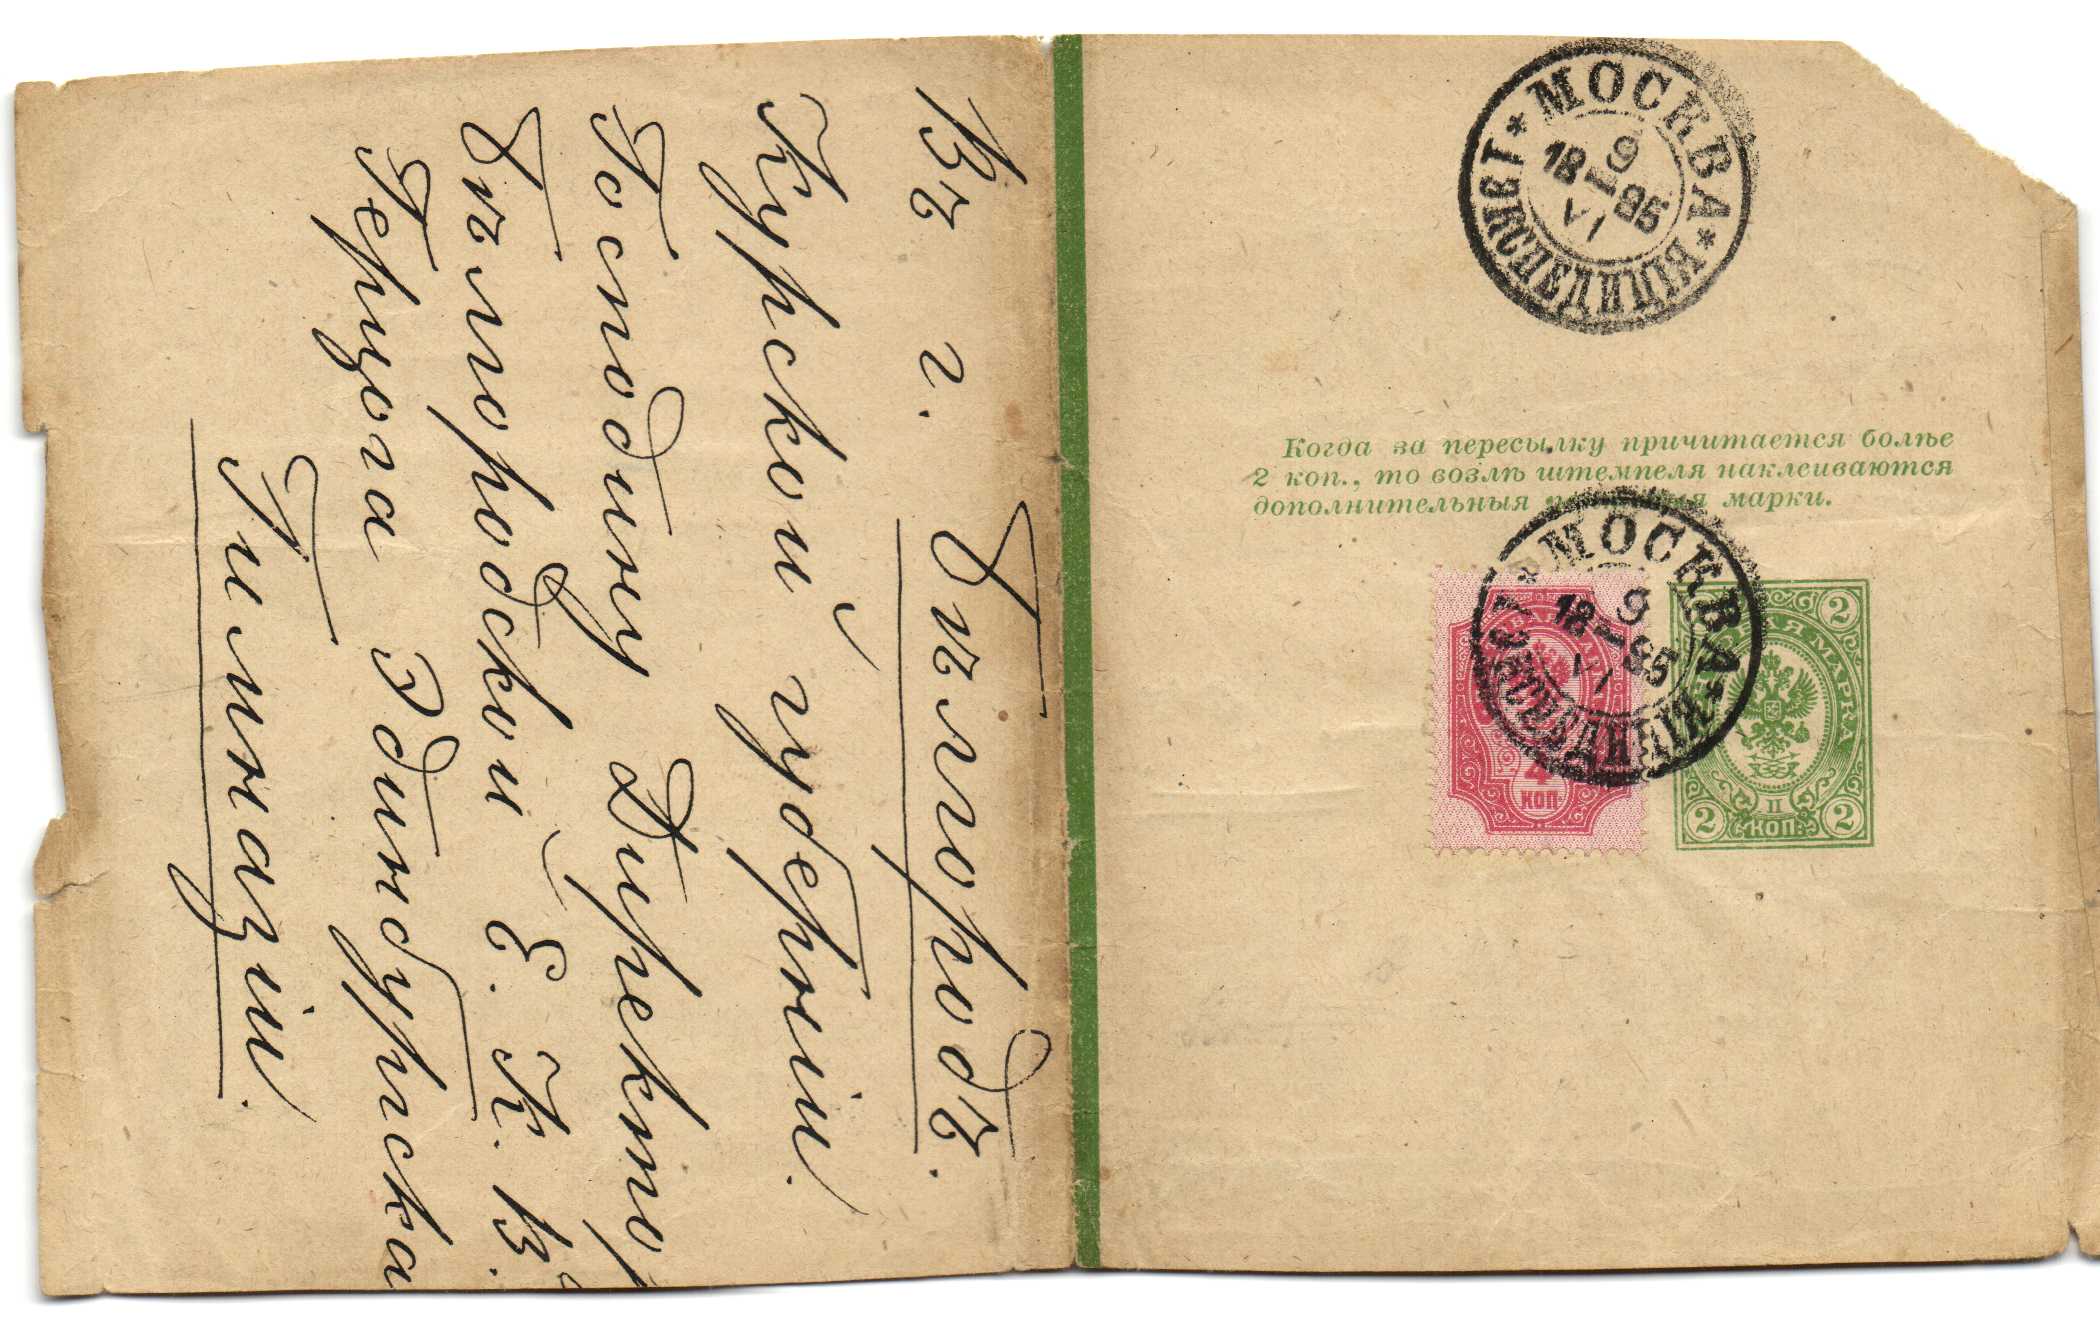 Въ г. Бѣлгородъ.
Курской губерніи.
Господину Директор
Бѣлгородской Е. К. В.
Герцога Эдинбургска
Гимназіи.
* МОСКВА *
9
18 95
VI
I ЭКСПЕДИЦІЯ
Когда за пересылку причитается болѣе
2 коп., то возлѣ штемпеля наклеиваются
дополнительныя марки.
* МОСКВА *
9
18 95
VI
ЭКСПЕДИЦІЯ
4
КОП.
2
МАРКА
II
2 КОП. 2